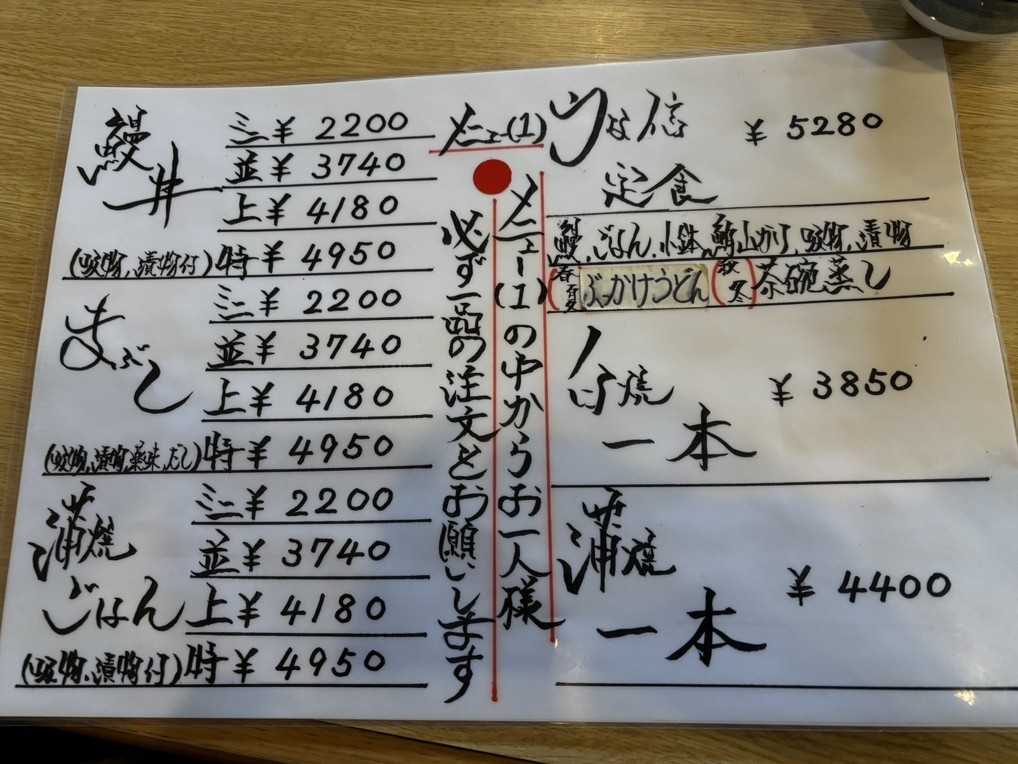 鰻丼
ミニ ¥ 2200
並 ¥ 3740
上 ¥ 4180
(吸物、漬物付)特 ¥ 4950
まぶし
ミニ ¥ 2200
並 ¥ 3740
上 ¥ 4180
(吸物,漬物,薬味,だし)特 ¥ 4950
蒲焼ごはん
ミニ ¥ 2200
並 ¥ 3740
上 ¥ 4180
(吸物、漬物付)特 ¥ 4950
メニュー(1)
メニュー(1)の中からお一人様
必ず一品の注文をお願いします
うな信 ¥ 5280
定食
鰻、ごはん、小鉢、鮪山かけ、吸物、漬物
(春夏 ぶっかけうどん (秋冬) 茶碗蒸し
白焼 ¥ 3850
一本
蒲焼 ¥ 4400
一本